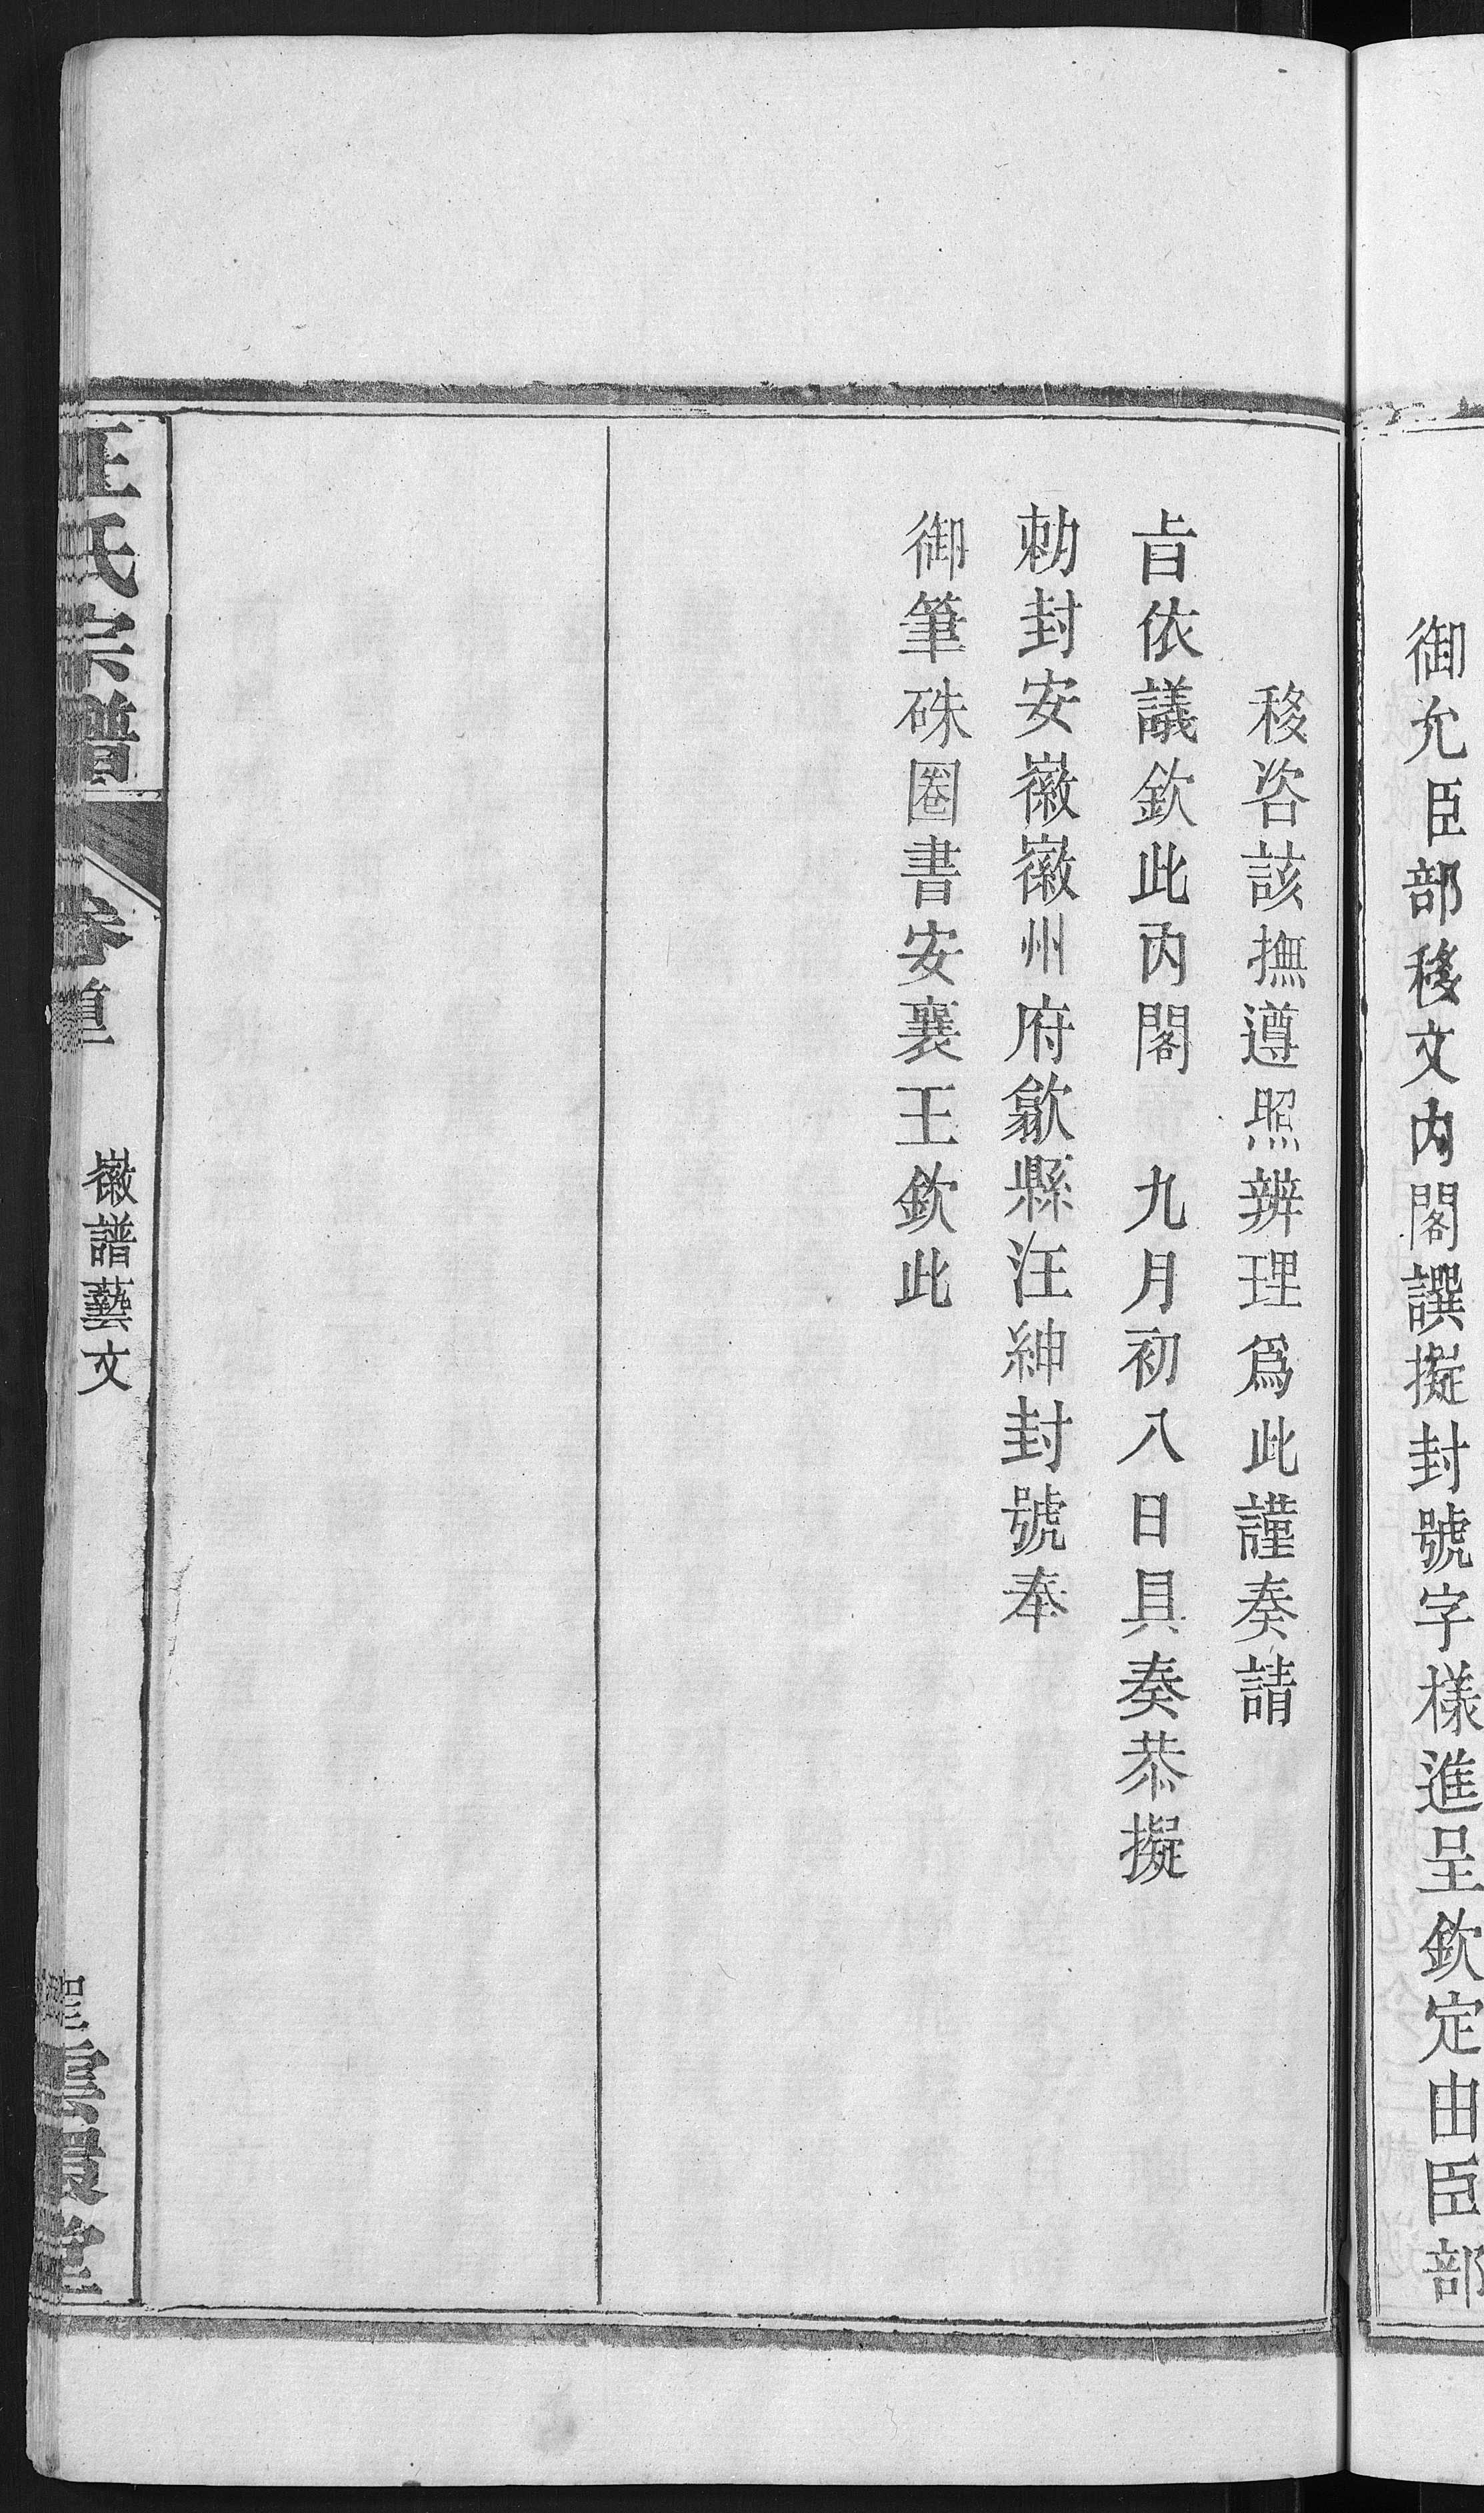 御允臣部移文內閣譔擬封號字樣進呈欽定由臣部
移咨該撫遵照辨理爲此謹奏請
旨依議欽此內閣　九月初八日具奏恭擬
勅封安徽徽州府歙縣汪紳封號奉
御筆硃圈書安襄王欽此
汪氏宗譜　卷
徽譜藝文